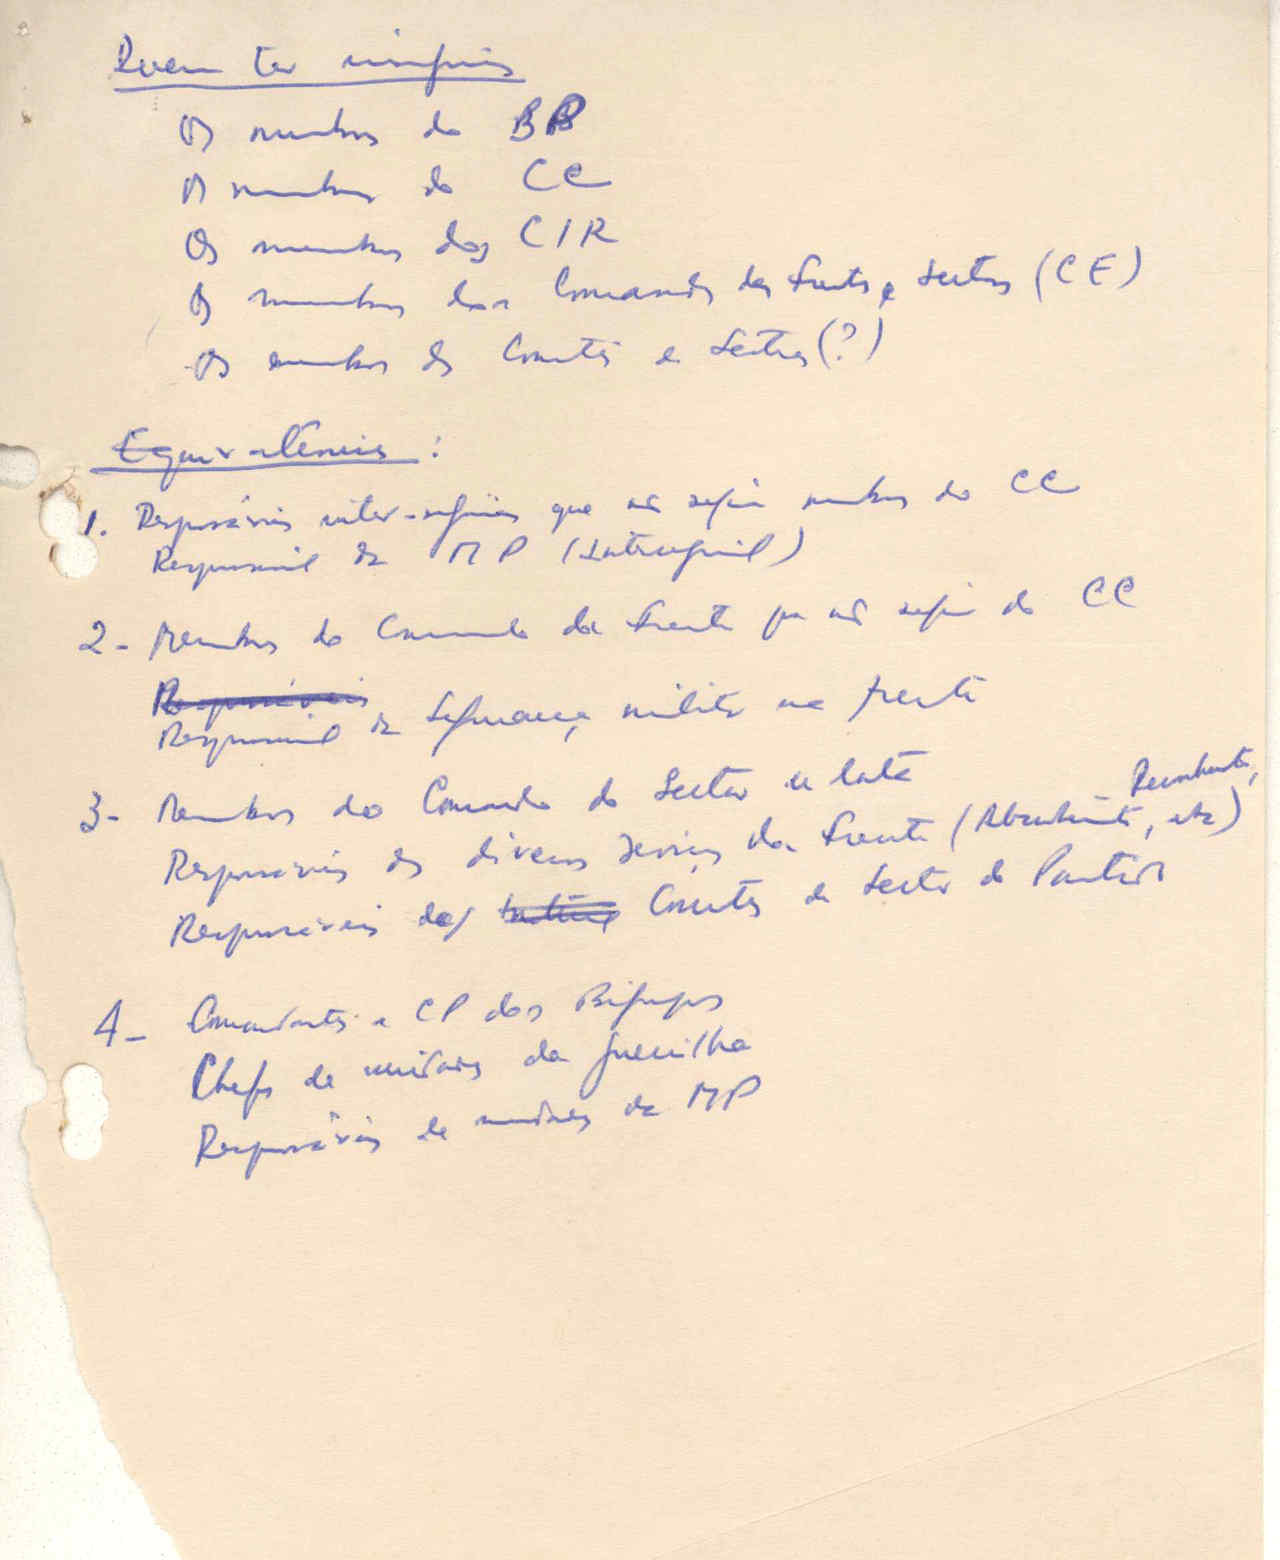 Devem ter insígnias
Os membros do BP
Os membros do CC
Os membros dos CIR
Os membros dos Comandos das Frentes e Sectores (CE)
Os membros dos Comités de Sectores (?)
Equivalências :
1. Responsáveis inter-regiões que não sejam membros do CC
Responsável da MP (Interregional)
2 - Membros do Comando da Frente que não sejam do CC
Responsáveis
Responsável da Segurança militar na frente
3 - Membros do Comando do Sector de luta
Reconhecimento,
Responsáveis dos diversos serviços da Frente (Abastecimento, etc)
Responsáveis dos Comités de Sector do Partido
4 - Comandantes e CP dos Bigrupos
Chefes de unidades da guerrilha
Responsáveis de unidades da MP